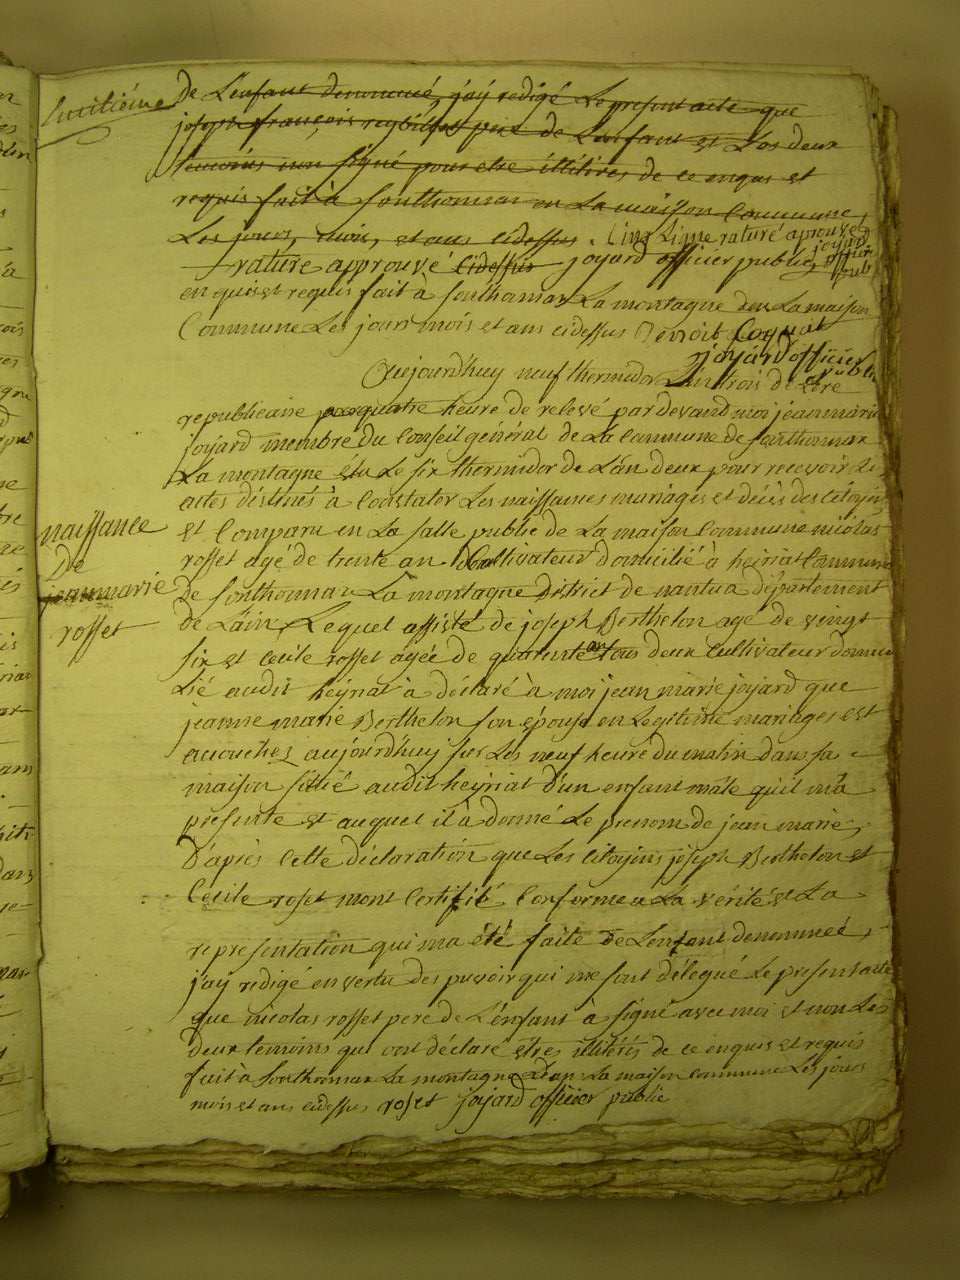 huitiéme
de L'enfant denommé, j'ay redigé Le present acte que
joseph françois reybillet pere de L'enfant et Les deux
temoins non signé pour etre illitires de ce enquis et
requis fait à Sonthonnax en La maison Commune,
Les jours, mois, et ans cidessus. Cinq Ligne raturé aprouvé
joyard officier pub
rature approuvé cidessus joyard officier public
en quis et requis fait à Sonthonnax La montagne dans La maison
Commune Les jours mois et ans cidessus Benoit
joyard officier public
Aujourd'huy neuf thermidor L'an trois de L'ere
republicaine quatre heure de relevé par devand moi jean marie
joyard membre du Conseil général de La Commune de Sonthonnax
La montagne élu Le six thermidor de L'an deux pour recevoir Les
actes déstinés à Constater Les naissances mariages et décès des Citoyens
est Comparu en La Salle public de La maison Commune nicolas
rosset agé de trente an Cultivateur domicilié à heiriat Commune
de Sonthonnax La montagne district de nantua département
de L'ain, Lequel assisté de joseph Berthelon age de vingt
six et Cecile rosset agée de quarante an tous deux Cultivateur domici
lié audit heyriat à déclaré à moi jean marie joyard que
jeanne marie Berthelon son épouse en Legitime mariages est
accouchez aujourd'huy sur Les neuf heure du matin dans sa
maison sittié audit heyriat D'un enfant mâle qu'il m'a
presenté et auquel il à donné Le prenom de jean marie,
D'après Cette déclaration que Les Citoyins joseph Berthelon et
Cecile roset mont Certifié Conforme a La vérité et La
representation qui ma été faite de L'enfant denommeé,
j'ay redigé en vertu des puvoir qui me sont délegué Le present acte
que nicolas rosset pere de L'énfant à signé avec moi et non Les
deux temoins qui ont déclaré etres illitéres de ce enquis et requis
fait à Sonthonnax La montagne dan La maison commune Les jours
mois et ans cidessus roset joyard officier public
naissance
De
jean marie
rosset